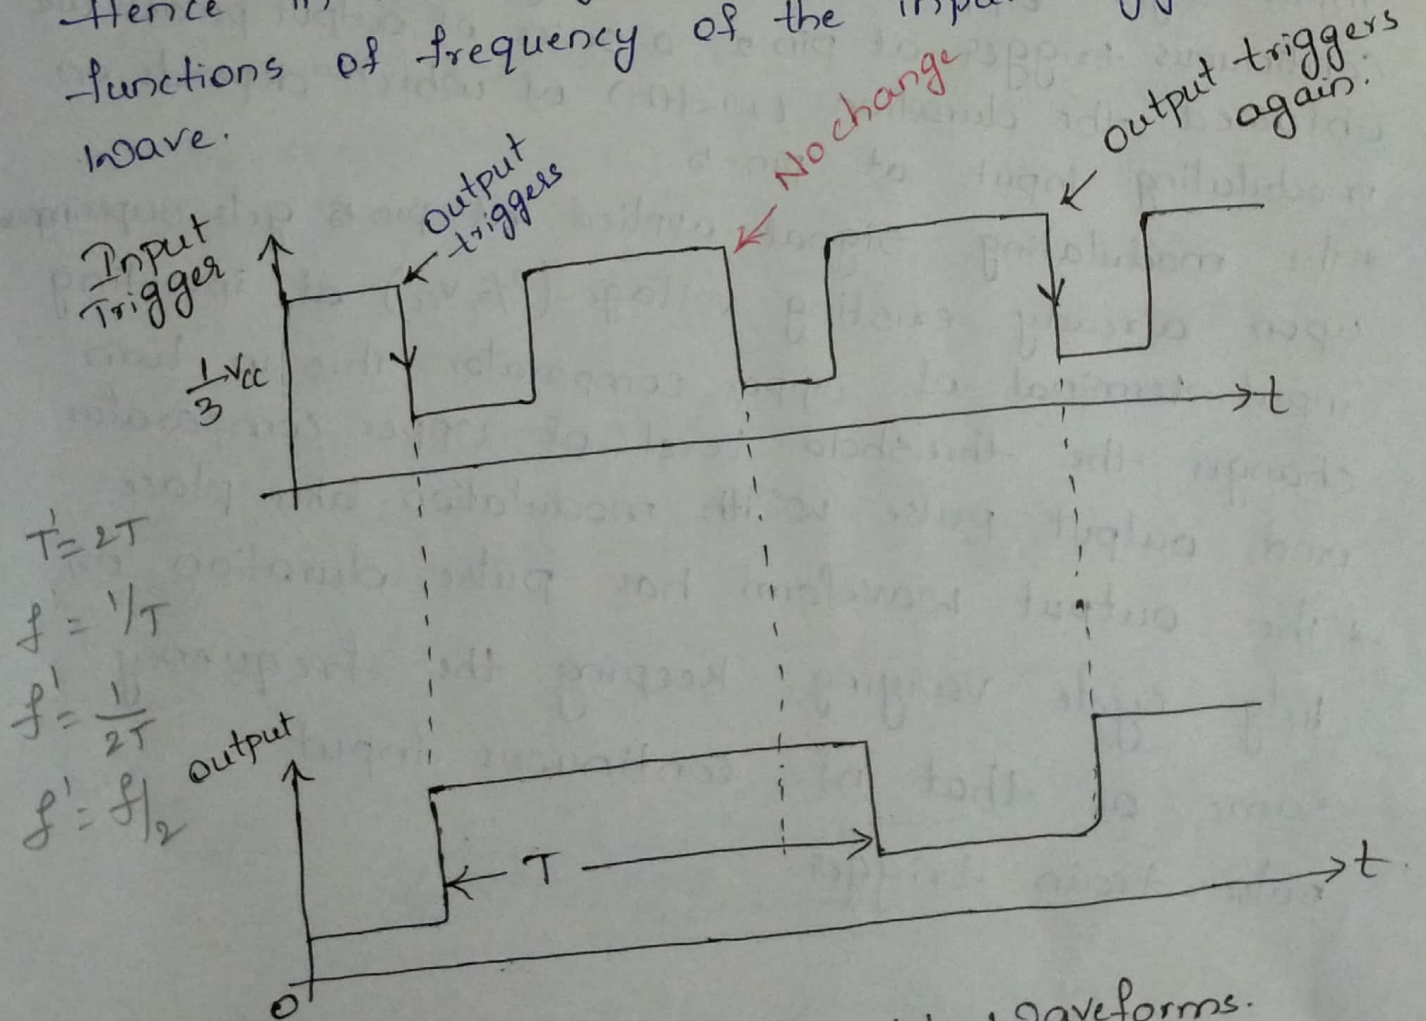 Hence in
functions of frequency of the
wave.
Input
Trigger
Output
triggers
No change
Output triggers
again.
1/3 Vcc
t
T' = 2T
f = 1/T
f' = 1/2T
f' = f/2
Output
T
t
0
waveforms.